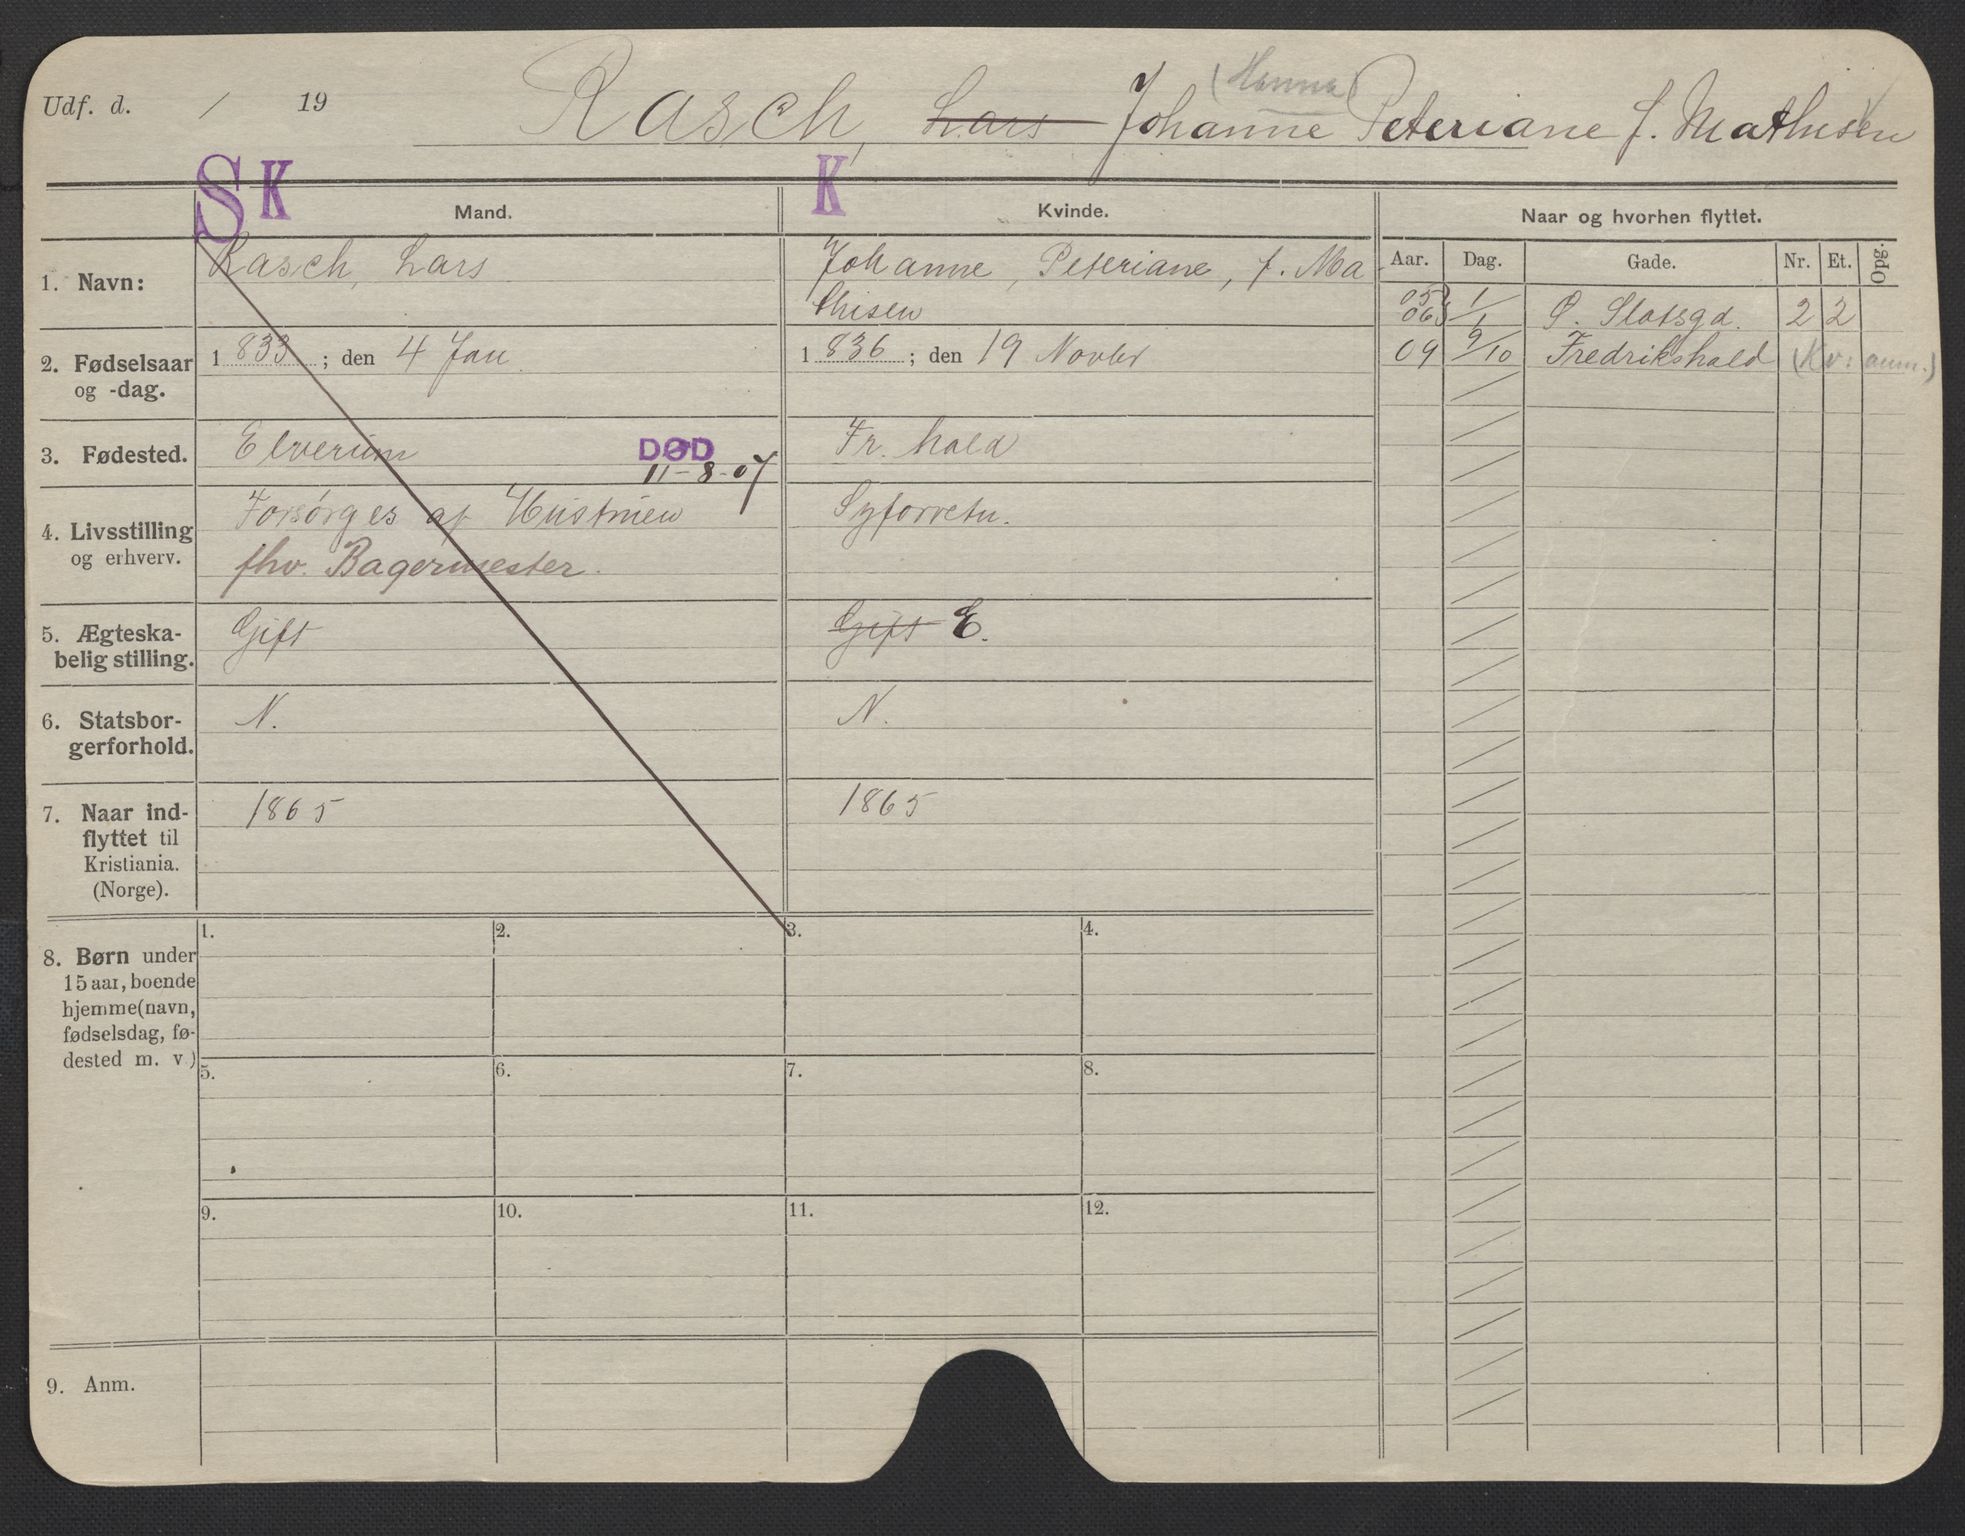 Udf. d. / 19
Rasch, Lars Johanne (Hanna) Peteriane f. Mathisen
S K K
Mand. Kvinde. Naar og hvorhen flyttet.
Aar. Dag. Gade. Nr. Et. Opg.
1. Navn: Rasch, Lars Johanne, Peteriane, f. Ma
thisen
05 1/1
06 1/1 Ø. Slotsgd. 2 2
09 9/10 Fredrikshald (Kv: anm.)
2. Fødselsaar
og -dag.
1 833 ; den 4 Jan 1 836 ; den 19 Novbr
3. Fødested. Elverum DØD Fr. hald
11-8-07
4. Livsstilling
og erhverv.
Forsørges af Hustruen Syforretn.
fhv. Bagermester.
5. Ægteska-
belig stilling.
Gift Gift E.
6. Statsbor-
gerforhold.
N. N.
7. Naar ind-
flyttet til
Kristiania.
(Norge).
1865 1865
8. Børn under
15 aar, boende
hjemme (navn,
fødselsdag, fø-
dested m. v.)
1. 2. 3. 4.
5. 6. 7. 8.
9. 10. 11. 12.
9. Anm.